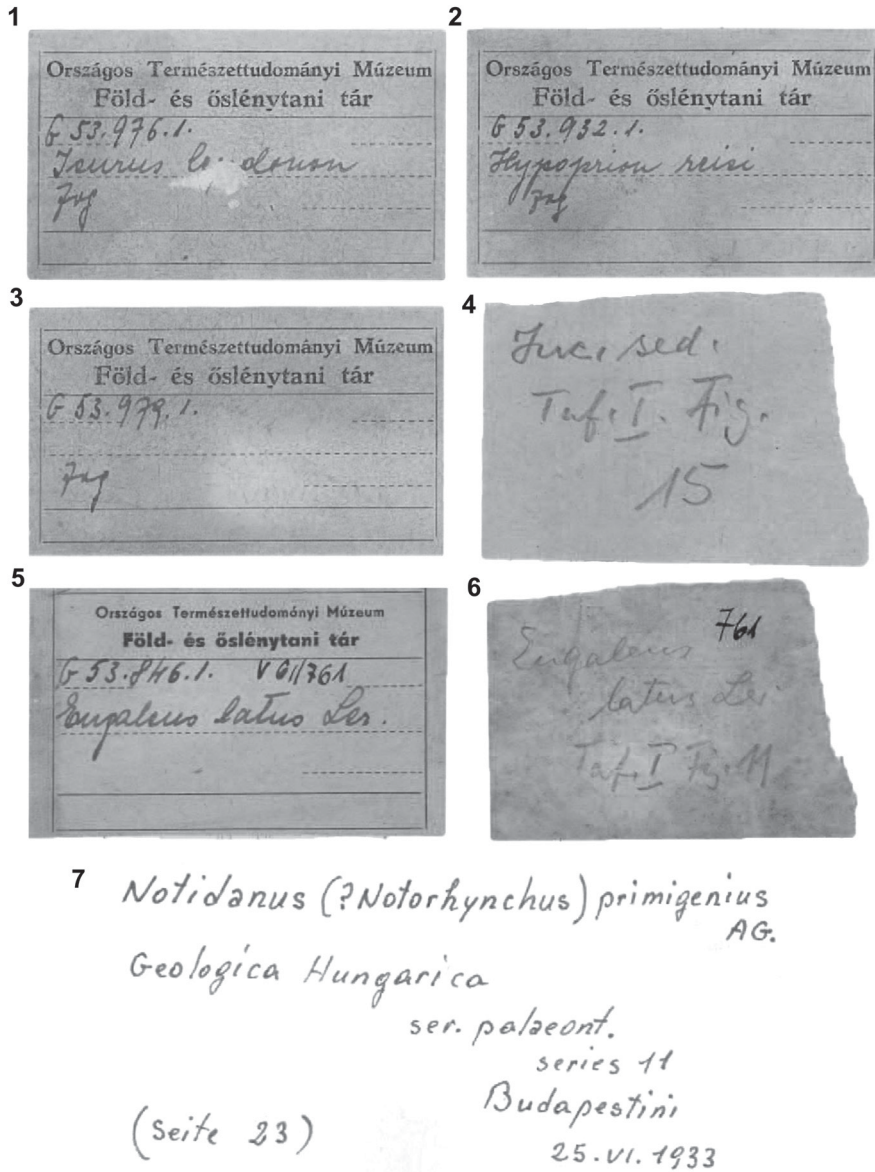 1
Országos Természettudományi Múzeum
Föld- és őslénytani tár
G 53.976.1.
Isurus
fog
2
Országos Természettudományi Múzeum
Föld- és őslénytani tár
G 53.932.1.
Hypoprion reisi
fog
3
Országos Természettudományi Múzeum
Föld- és őslénytani tár
G 53.979.1.
fog
4
Inc. sed.
Taf. I. Fig.
15
5
Országos Természettudományi Múzeum
Föld- és őslénytani tár
G 53.846.1. V 61/761
Eugaleus latus Ler.
6
761
Eugaleus
latus Ler
Taf. I Fig. 11
7
Notidanus (?Notorhynchus) primigenius
AG.
Geologica Hungarica
ser. palaeont.
series 11
Budapestini
(Seite 23)
25.VI.1933